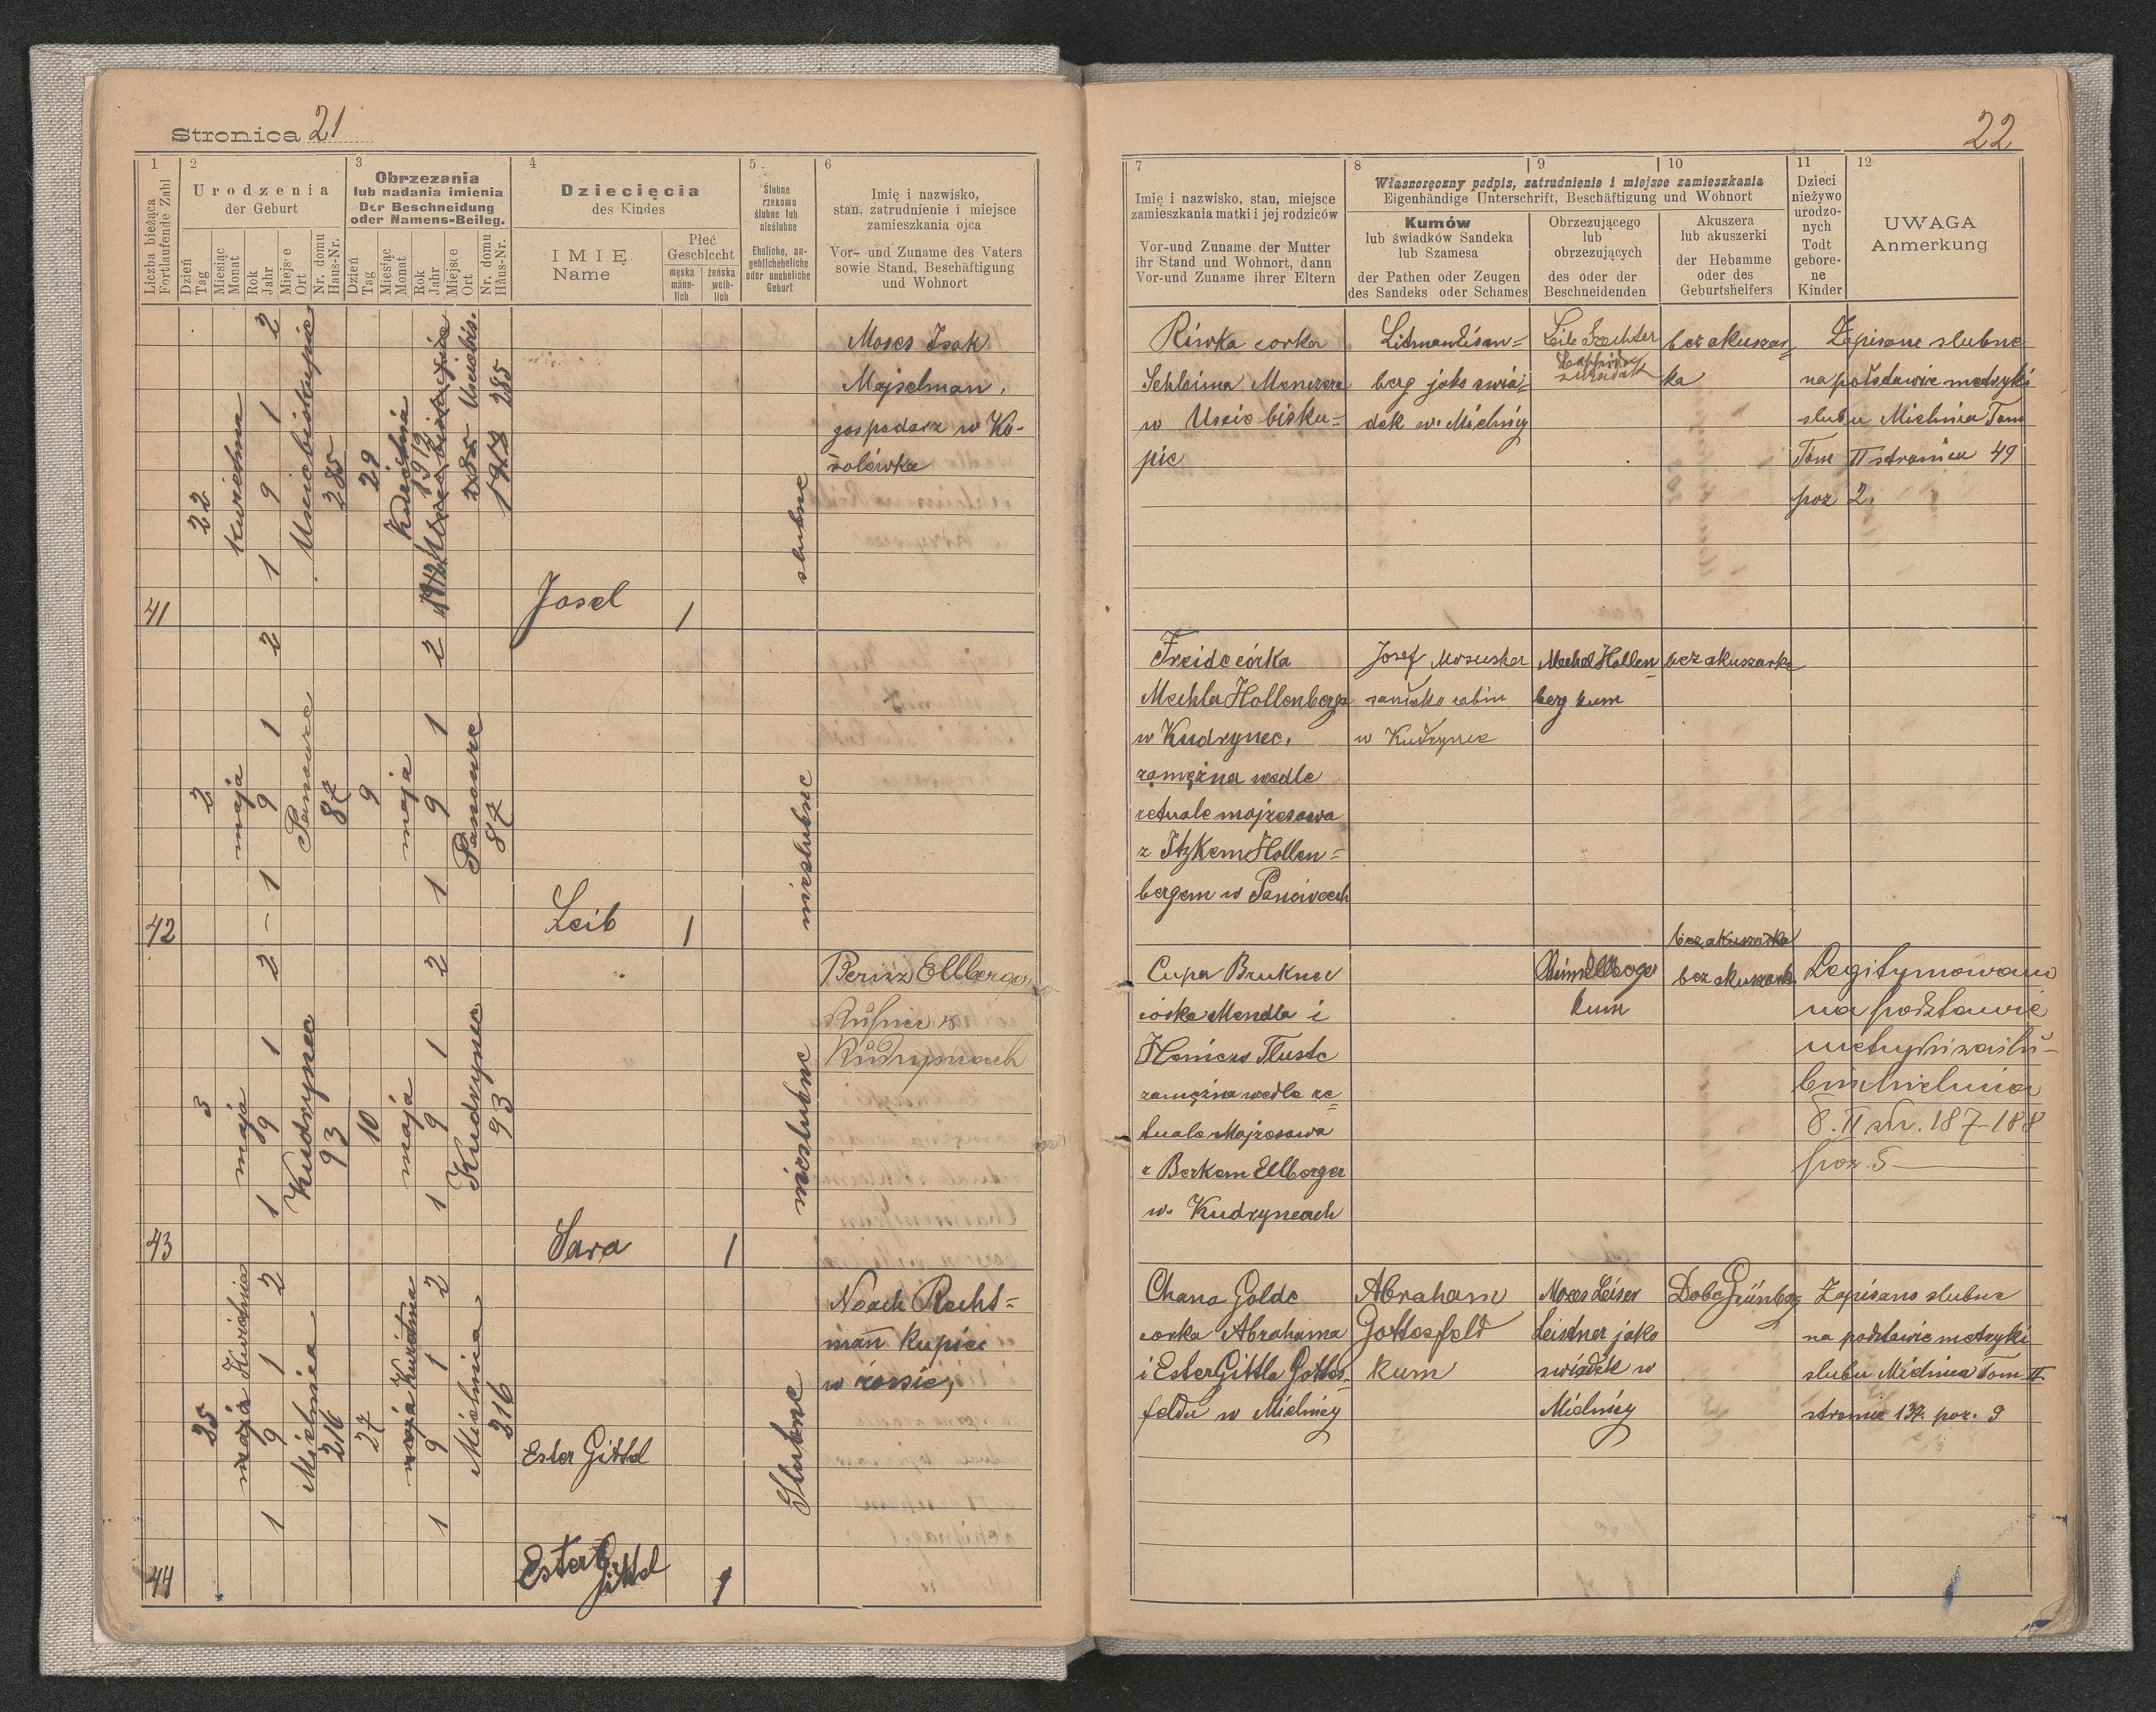 Stronica 21
1
Liczba bieżąca
Fortlaufende Zahl
2
Urodzenia
der Geburt
Dzień
Tag
Miesiąc
Monat
Rok
Jahr
Miejsce
Ort
Nr. domu
Haus-Nr.
3
Obrzezania
lub nadania imienia
Der Beschneidung
oder Namens-Beileg.
Dzień
Tag
Miesiąc
Monat
Rok
Jahr
Miejsce
Ort
Nr. domu
Haus-Nr.
4
Dziecięcia
des Kindes
IMIĘ
Name
Płeć
Geschlecht
męska
männ-
lich
żeńska
weib-
lich
5
Ślubne
rzekomo
ślubne lub
nieślubne
Eheliche, an-
geblicheheliche
oder uneheliche
Geburt
6
Imię i nazwisko,
stan, zatrudnienie i miejsce
zamieszkania ojca
Vor- und Zuname des Vaters
sowie Stand, Beschäftigung
und Wohnort
41
22
kwietnia
1912
Uscie biskupie
285
29
Kwietnia
1912
Uscie bis.
285
Josel
1
slubne
Moses Isak
Majselman,
gospodarz w Ko-
rolówka
42
2
maja
1912
Panowce
87
9
maja
1912
Panowce
87
Leib
1
nieslubne
43
3
maja
1912
Kudrynce
93
10
maja
1912
Kudrynce
93
Sara
1
nieslubne
Berisz Ellberger
Kuśnier w
Kudryńcach
44
25
maja Kwietnia
1912
Mielnica
216
27
maja Kwietnia
1912
Mielnica
216
Ester Gittel
Ester Gittel
1
Slubne
Noach Recht-
man kupiec
w
22
7
Imię i nazwisko, stan, miejsce
zamieszkania matki i jej rodziców
Vor-und Zuname der Mutter
ihr Stand und Wohnort, dann
Vor-und Zuname ihrer Eltern
8
9
10
Własnoręczny podpis, zatrudnienie i miejsce zamieszkania
Eigenhändige Unterschrift, Beschäftigung und Wohnort
Kumów
lub świadków Sandeka
lub Szamesa
der Pathen oder Zeugen
des Sandeks oder Schames
Obrzezującego
lub
obrzezujących
des oder der
Beschneidenden
Akuszera
lub akuszerki
der Hebamme
oder des
Geburtshelfers
11
Dzieci
nieżywo
urodzo-
nych
Todt
gebore-
ne
Kinder
12
UWAGA
Anmerkung
Riwka corka
Schloima Menczera
w Uscie bisku=
pie
Litman Eisen=
berg jako swia-
dek w Mielnicy
Leib Szechter
bez akuszer=
ka
Zapisane slubne
na podstawie metryki
slubu Mielnica Tom
Tom II stronica 49
poz 2.
Freide córka
Mechla Hollenberga
w Kudrynec,
zamężna wedle
retuale majzesowa
z Itzkem Hollen=
bergem w Panowcach
Josef Mosusker
rabin
w Kudrynce
Mechel Hollen
berg kum
bez akuszerka
Cupa Brukner
córka Mendla i
Tluste
zamężna wedle re=
tuale Majzesowa
z Berkem Ellberger
w Kudryncach
Ellberger
kum
bez akuszerka
bez akuszerka
Legitymowano
na podstawie
metryki zaślu-
bin Mielnica
T. II str. 187-188
poz. 5
Chana Golde
corka Abrahama
i Ester Gittla Gottes=
feldu w Mielnicy
Abraham
Gottesfeld
kum
Moses Leiser
Leistner jako
swiadek w
Mielnicy
Dobe Grünberg
Zapisano slubne
na podstawie metryki
slubu Mielnica Tom II
stronie 137. poz. 9